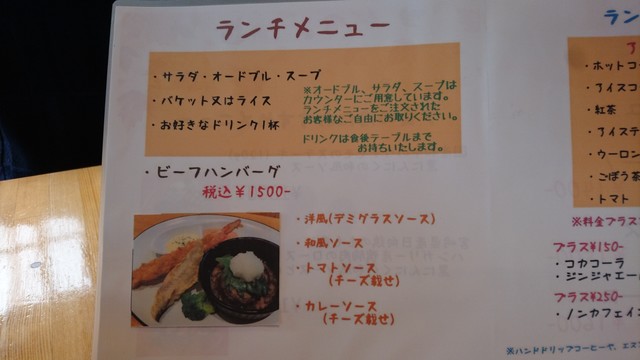 ランチメニュー
・サラダ・オードブル・スープ
・バケット又はライス
・お好きなドリンク1杯
※オードブル、サラダ、スープは
カウンターにご用意しています。
ランチメニューをご注文された
お客様なご自由にお取りください。
ドリンクは食後テーブルまで
お持ちいたします。
・ビーフハンバーグ
税込¥1500-
・洋風(デミグラスソース)
・和風ソース
・トマトソース
(チーズ載せ)
・カレーソース
(チーズ載せ)
ラン
・ホットコ
・アイスコ
・紅茶
・アイステ
・ウーロン
・ごぼう茶
・トマト
※料金プラス
プラス¥150-
・コカコーラ
・ジンジャエー
プラス¥250-
・ノンカフェイン
※ハンドドリップコーヒーや、エス